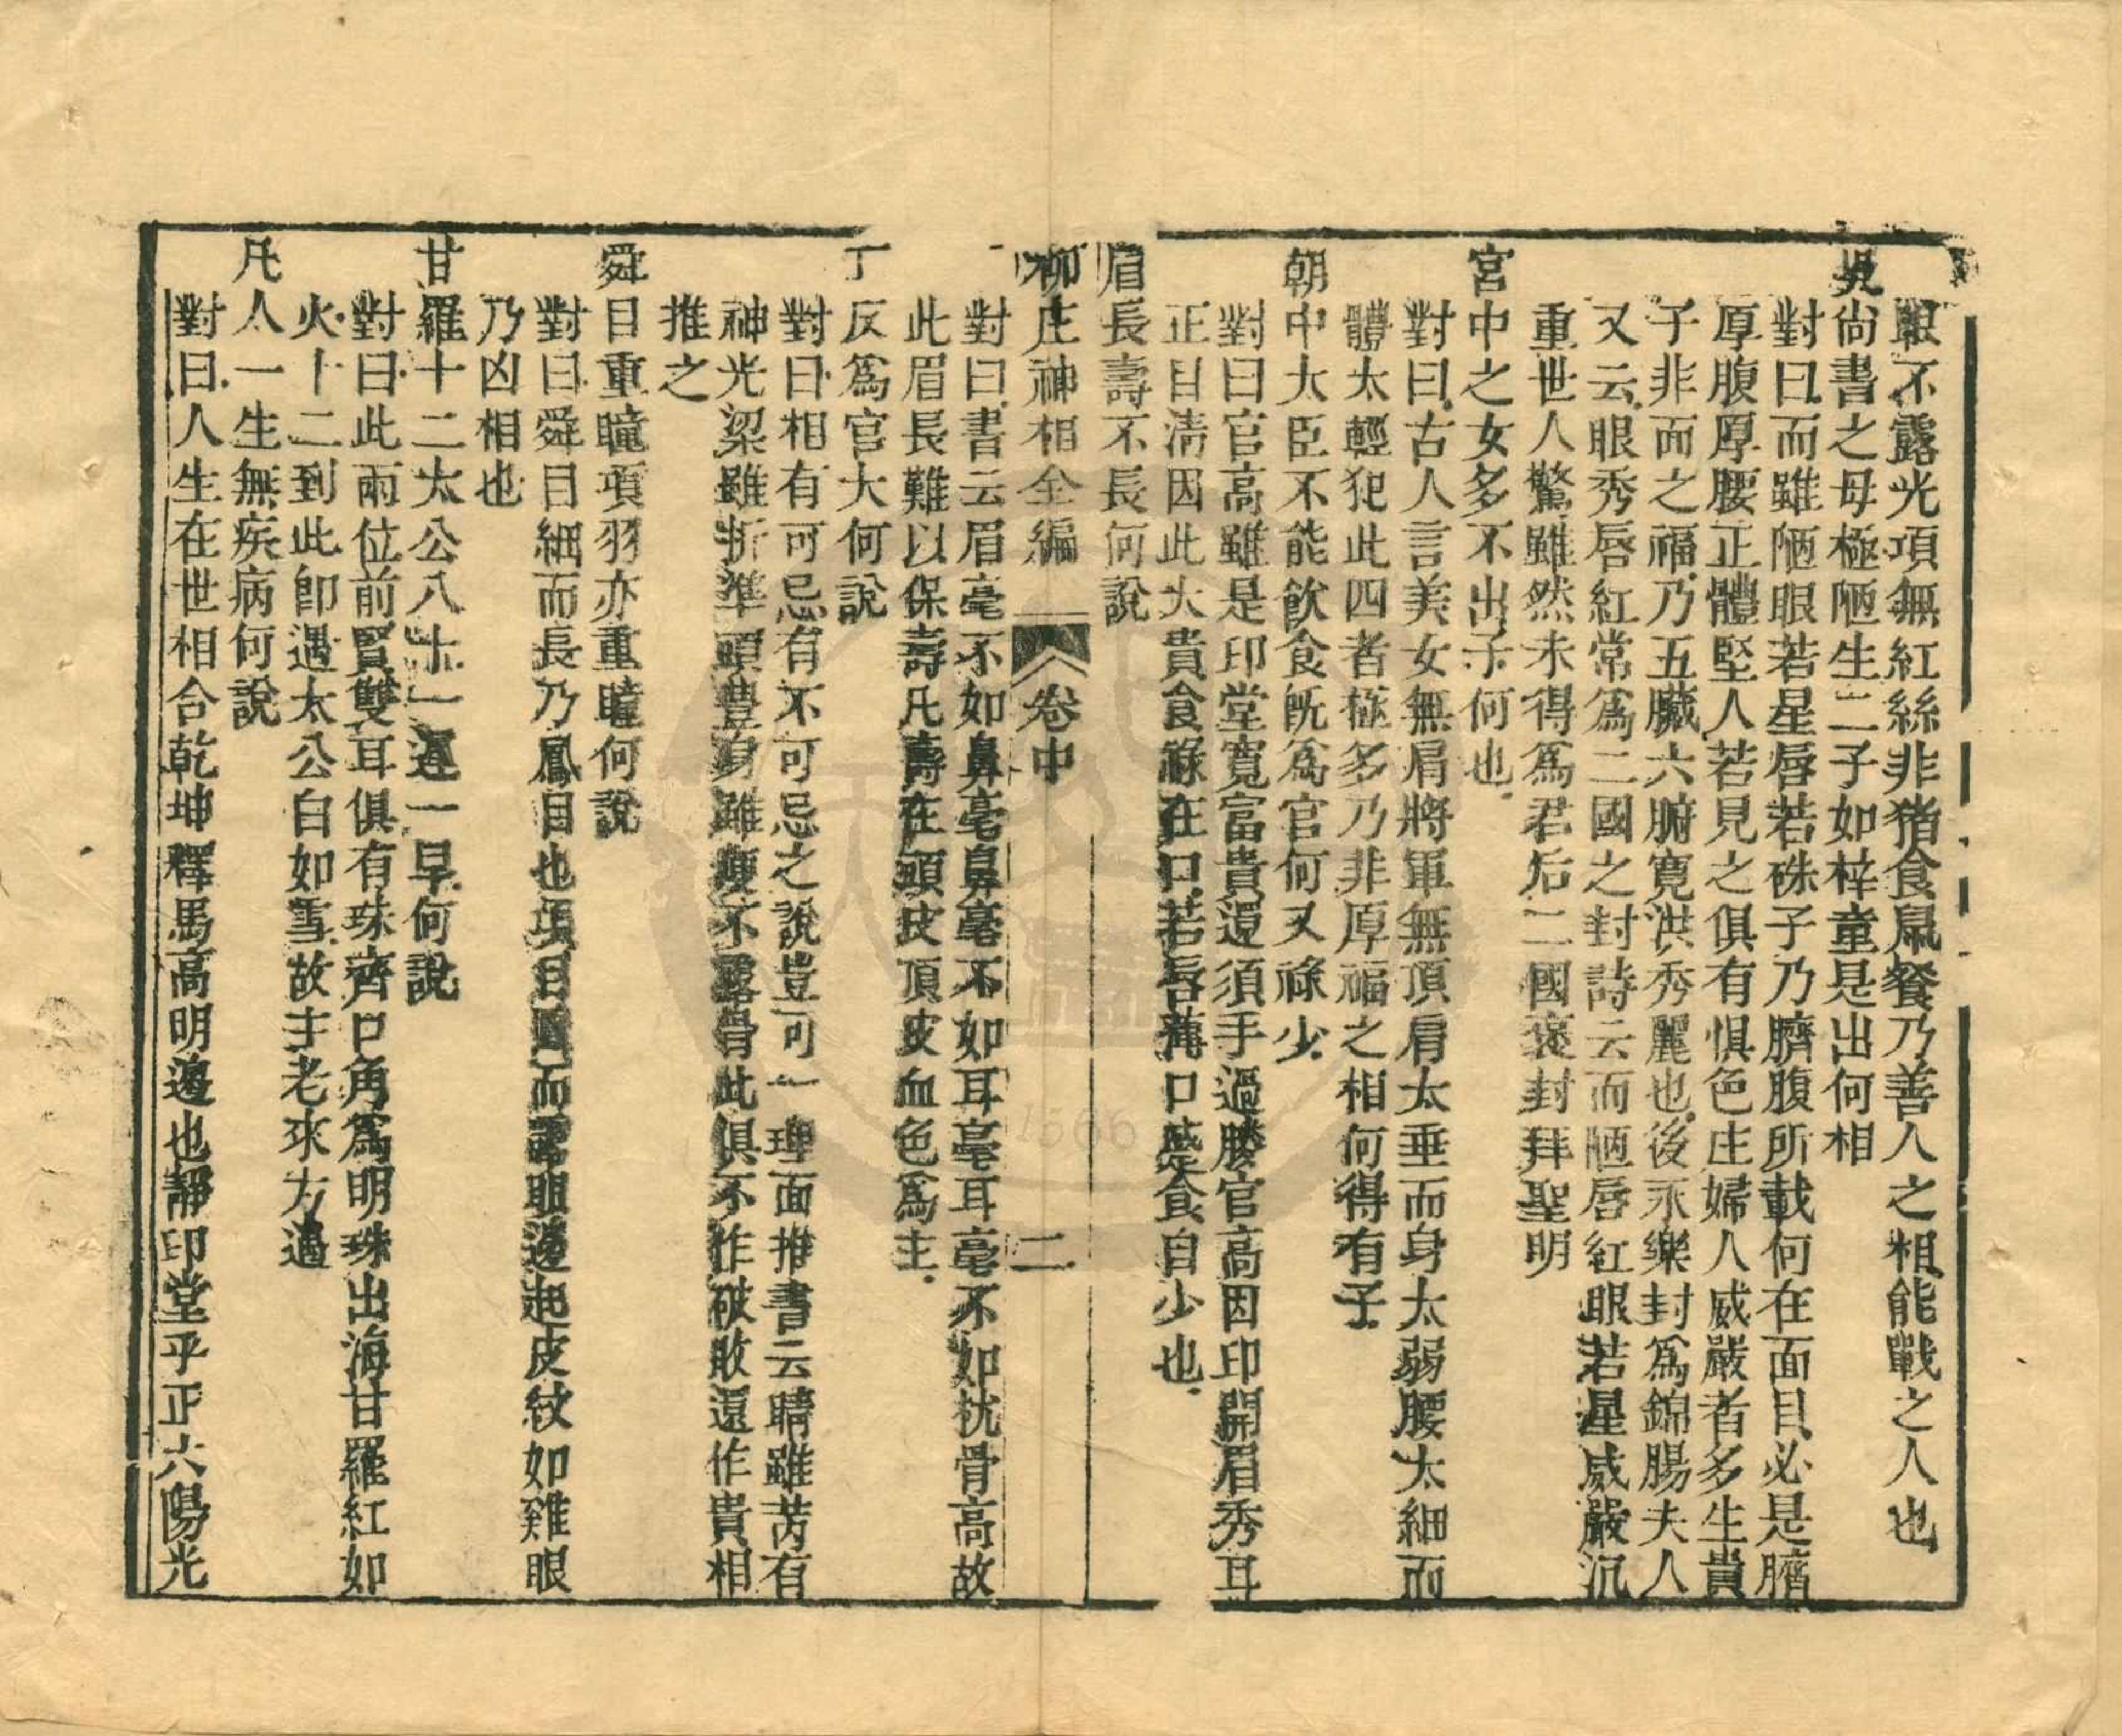 眼不露光項無紅絲非猪食鼠餐乃善人之相能戰之人也
吳尙書之母極陋生二子如梓童是出何相
對曰而雖陋眼若星唇若硃子乃臍腹所載何在面目必是臍
厚腹厚腰正體堅人若見之俱有惧色庄婦人威嚴者多生貴
子非面之福乃五臟六腑寬洪秀麗也後永樂封爲錦腸夫人
又云眼秀唇紅常爲二國之封詩云面陋唇紅眼若星威嚴沉
重世人驚雖然未得爲君后二國褒封拜聖明
宮中之女多不出子何也
對曰古人言美女無肩將軍無項肩太垂而身太弱腰太細而
體太輕犯此四者極多乃非厚福之相何得有子
朝中大臣不能飮食旣爲官何又祿少
對曰官高雖是印堂寬富貴還須手過膝官高因印開眉秀耳
正目淸因此大貴食祿在口若唇薄口 食自少也
眉長壽不長何說
柳庄神相全編 卷中 二
對曰書云眉毫不如鼻毫鼻毫不如耳毫耳毫不如枕骨高故
此眉長難以保壽凡壽在頭皮頂皮血色爲主
丁反爲官大何說
對曰相有可忌有不可忌之說豈可一理面推書云睛雖 有
神光梁雖折準頭豊身雖瘦不露骨此俱不作破敗還作貴相
推之
舜目重瞳項羽亦重瞳何說
對曰舜目細而長乃鳳目也項目圓而露眼邊起皮紋如雞眼
乃凶相也
甘羅十二太公八十一遲一早何說
對曰此兩位前賢雙耳俱有珠齊口角爲明珠出海甘羅紅如
火十二到此卽遇太公白如雪故主老來方遇
凡人一生無疾病何說
對曰人生在世相合乾坤驛馬高明邊也靜印堂乎正六陽光